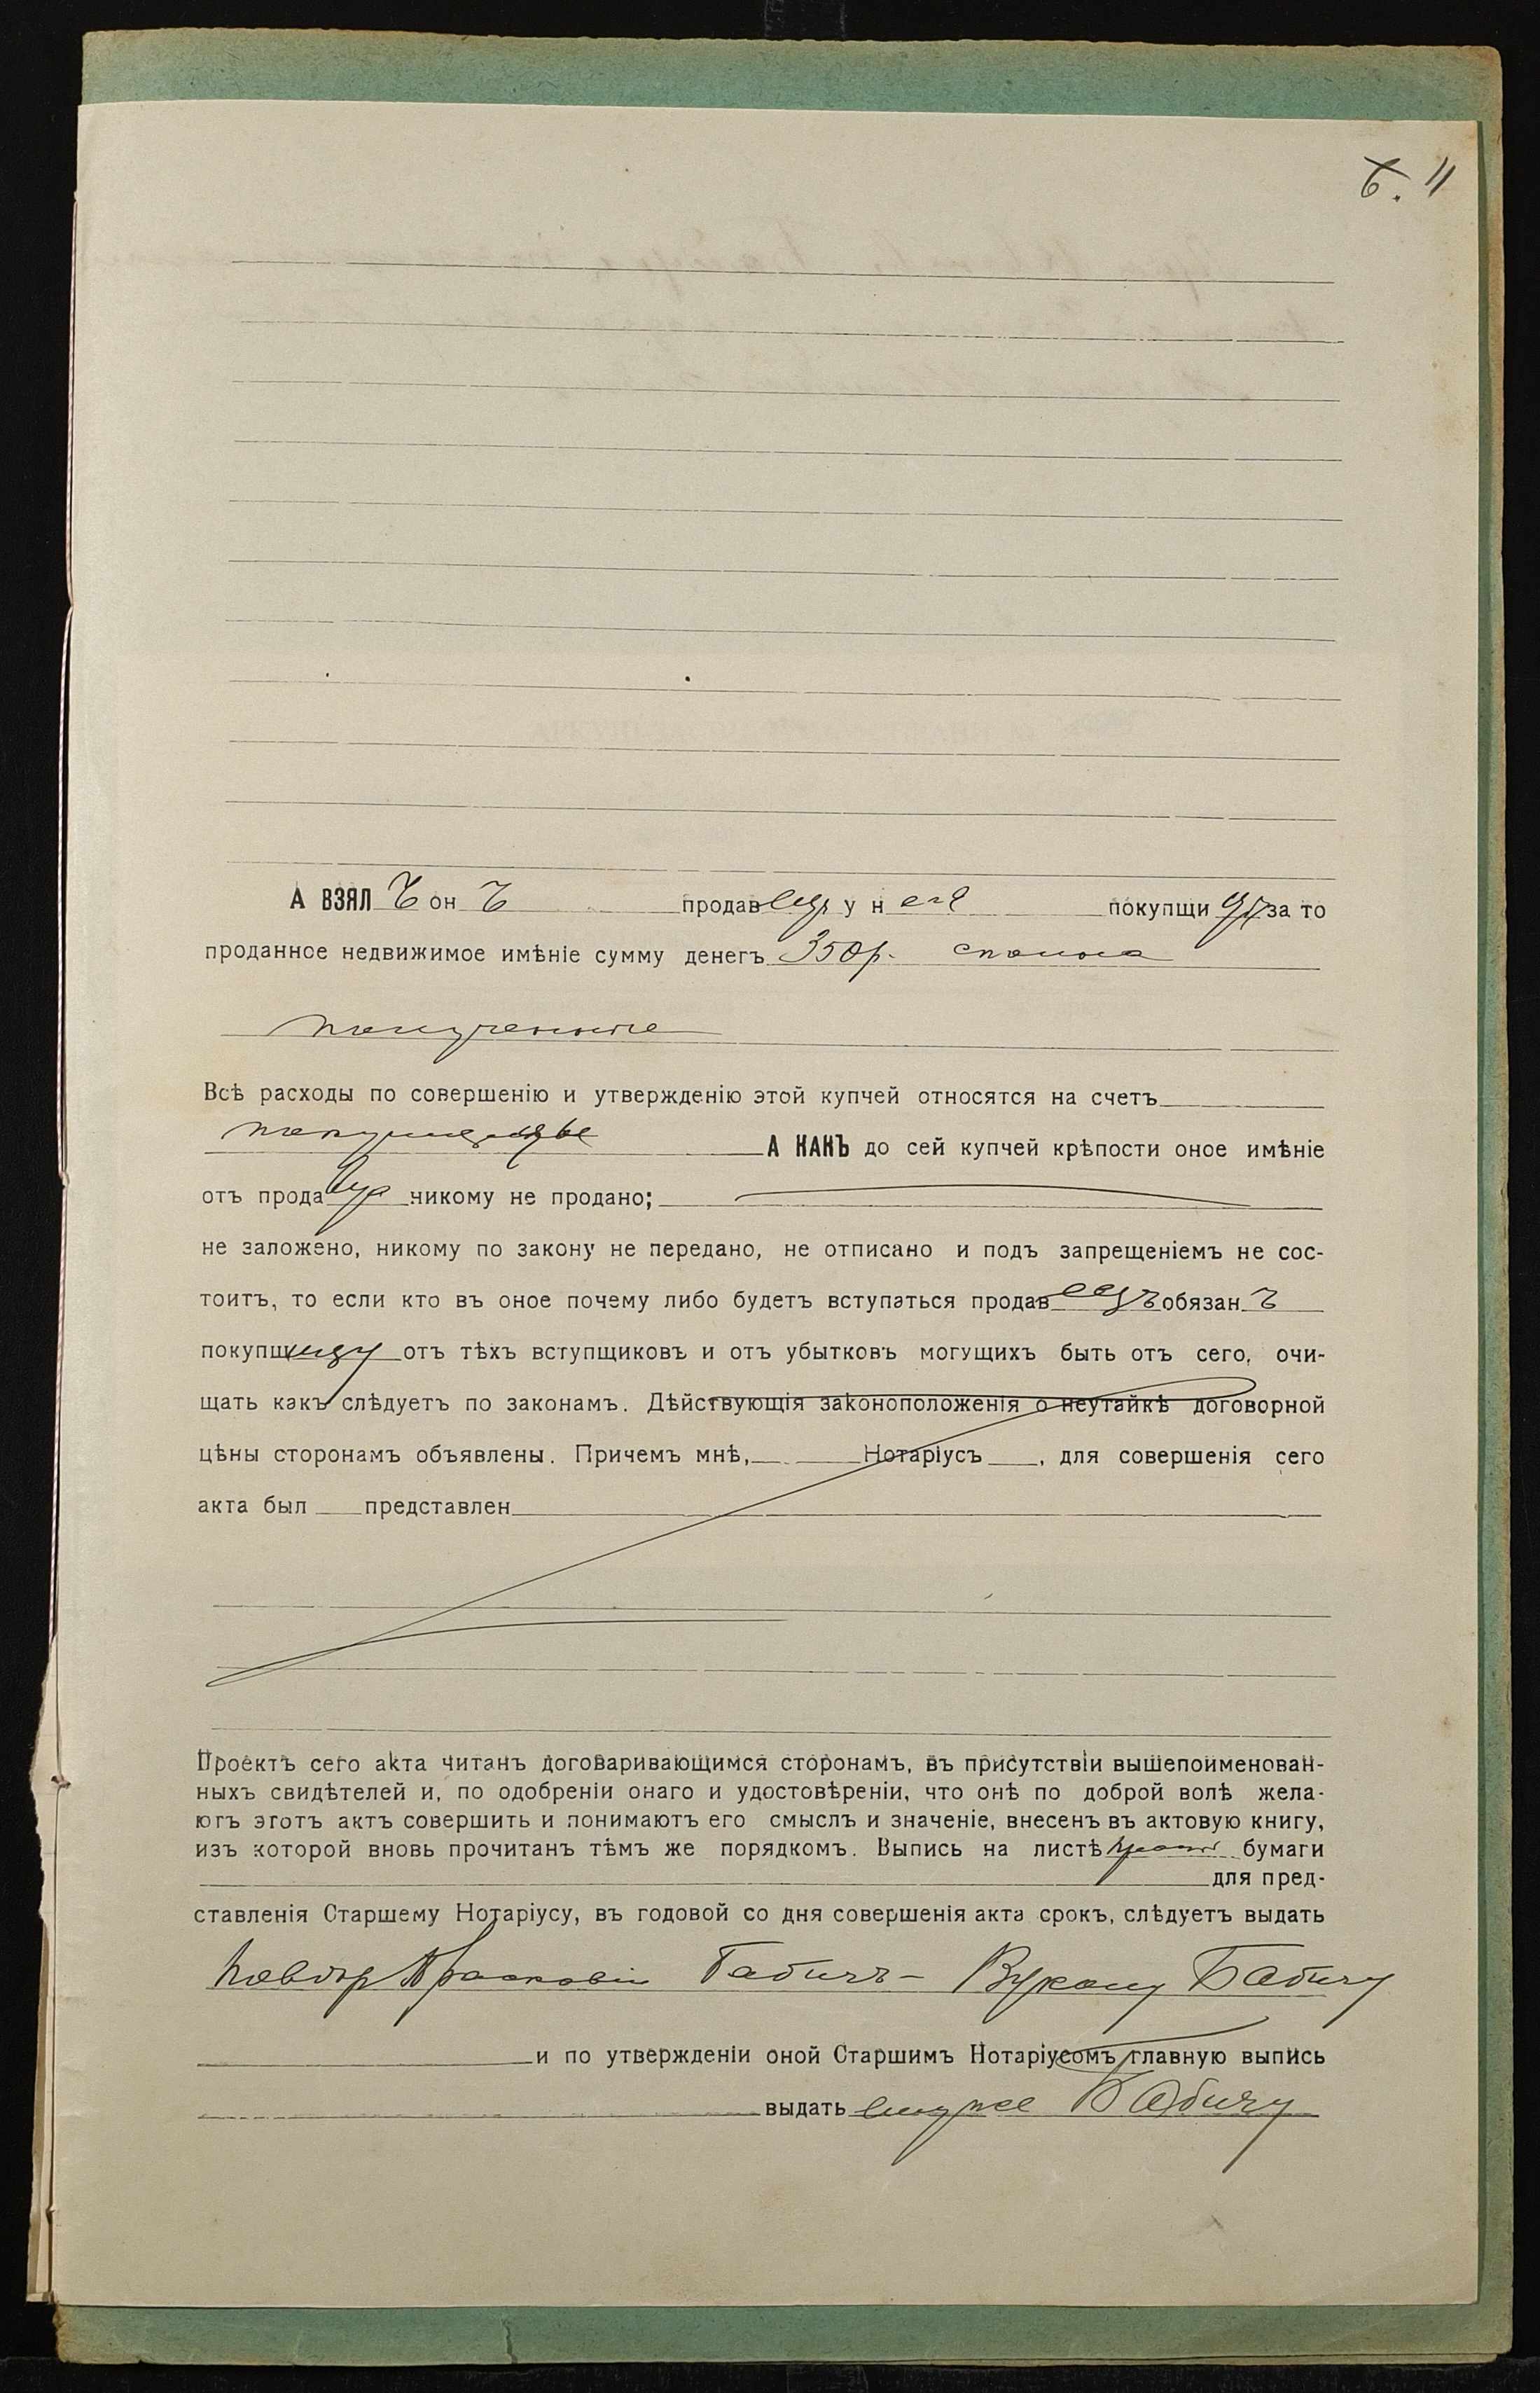 6. 11
А ВЗЯЛ ъ он ъ продавецъ у н ея покупщицы за то
проданное недвижимое имѣніе сумму денегъ 350 р. сполна
полученные
Всѣ расходы по совершенію и утвержденію этой купчей относятся на счетъ
А КАКЪ до сей купчей крѣпости оное имѣніе
отъ продавца никому не продано;
не заложено, никому по закону не передано, не отписано и подъ запрещеніемъ не сос-
тоитъ, то если кто въ оное почему либо будетъ вступаться продавецъ обязан ъ
покупщицу отъ тѣхъ вступщиковъ и отъ убытковъ могущихъ быть отъ сего, очи-
щать какъ слѣдуетъ по законамъ. Дѣйствующія законоположенія о неутайкѣ договорной
цѣны сторонамъ объявлены. Причемъ мнѣ, Нотаріусъ , для совершенія сего
акта был представлен
Проектъ сего акта читанъ договаривающимся сторонамъ, въ присутствіи вышепоименован-
ныхъ свидѣтелей и, по одобреніи онаго и удостовѣреніи, что онѣ по доброй волѣ жела-
ютъ этотъ актъ совершить и понимаютъ его смыслъ и значеніе, внесенъ въ актовую книгу,
изъ которой вновь прочитанъ тѣмъ же порядкомъ. Выпись на листѣ бумаги
для пред-
ставленія Старшему Нотаріусу, въ годовой со дня совершенія акта срокъ, слѣдуетъ выдать
Бабичъ - Вуколу Бабичу
и по утвержденіи оной Старшимъ Нотаріусомъ главную выпись
выдать ему же Бабичу